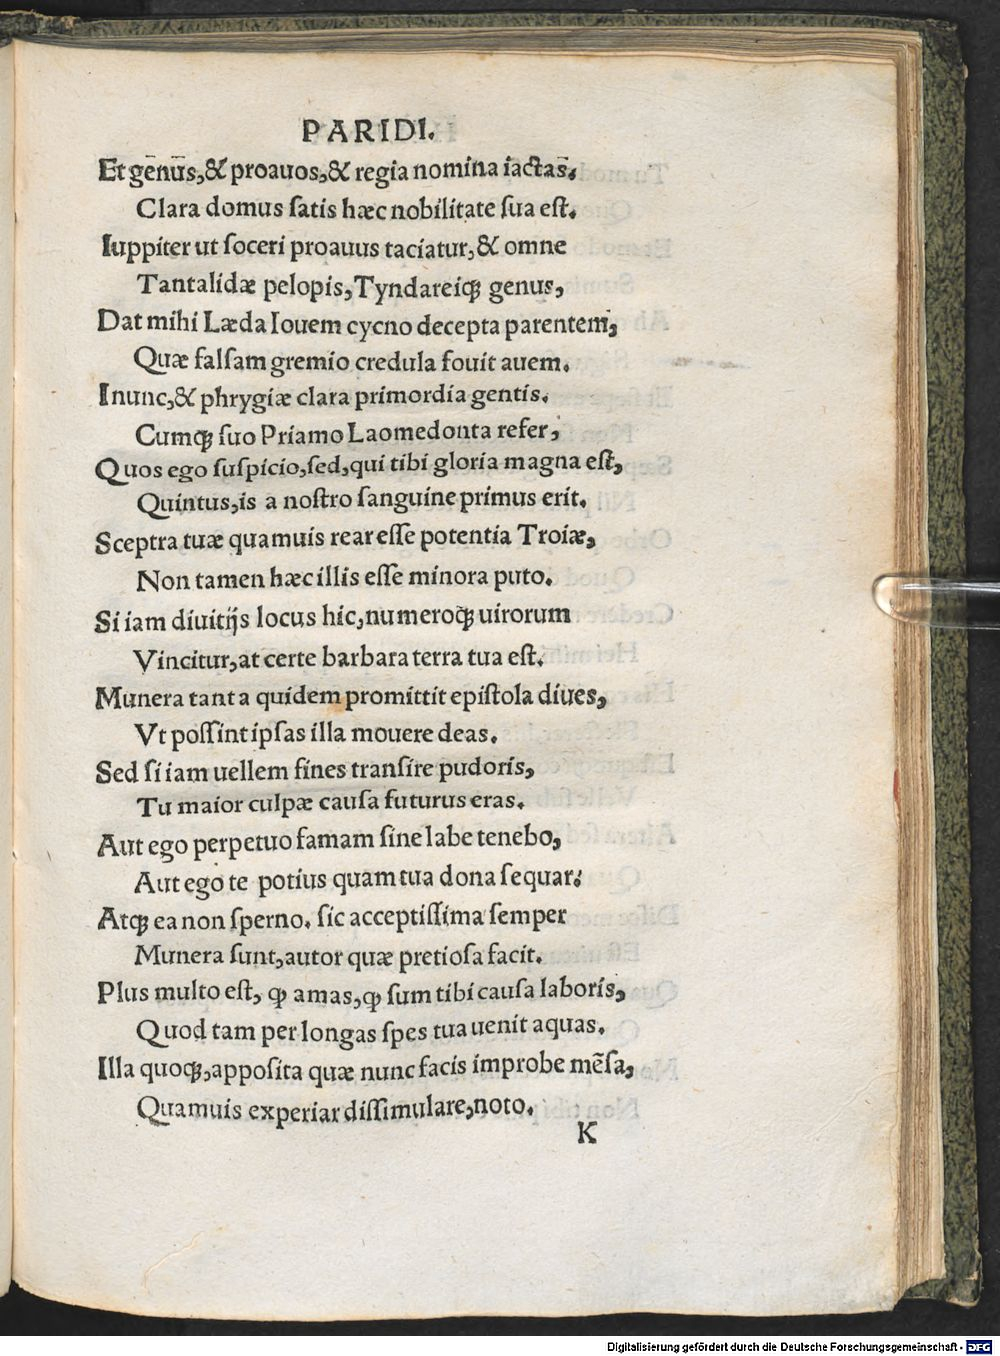 PARIDI.
Et gēnūs, & proauos, & regia nomina iactas̄.
Clara domus satis hæc nobilitate sua est.
Iuppiter ut soceri proauus taciatur, & omne
Tantalidæ pelopis, Tyndareiqꝫ genus,
Dat mihi Læda Iouem cycno decepta parentem,
Quæ falsam gremio credula fouit auem.
I nunc, & phrygiæ clara primordia gentis.
Cumqꝫ suo Priamo Laomedonta refer,
Quos ego suspicio, sed, qui tibi gloria magna est,
Quintus, is a nostro sanguine primus erit.
Sceptra tuæ quamuis rear esse potentia Troiæ,
Non tamen hæc illis esse minora puto.
Si iam diuitijs locus hic, numeroqꝫ uirorum
Vincitur, at certe barbara terra tua est.
Munera tanta quidem promittit epistola diues,
Vt possint ipsas illa mouere deas.
Sed si iam uellem fines transire pudoris,
Tu maior culpæ causa futurus eras.
Aut ego perpetuo famam sine labe tenebo,
Aut ego te potius quam tua dona sequar:
Atqꝫ ea non sperno. sic acceptissima semper
Munera sunt, autor quæ pretiosa facit.
Plus multo est, ꝙ amas, ꝙ sum tibi causa laboris,
Quod tam per longas spes tua uenit aquas.
Illa quoqꝫ, apposita quæ nunc facis improbe mēsa,
Quamuis experiar dissimulare, noto.
K
Digitalisierung gefördert durch die Deutsche Forschungsgemeinschaft - DFG